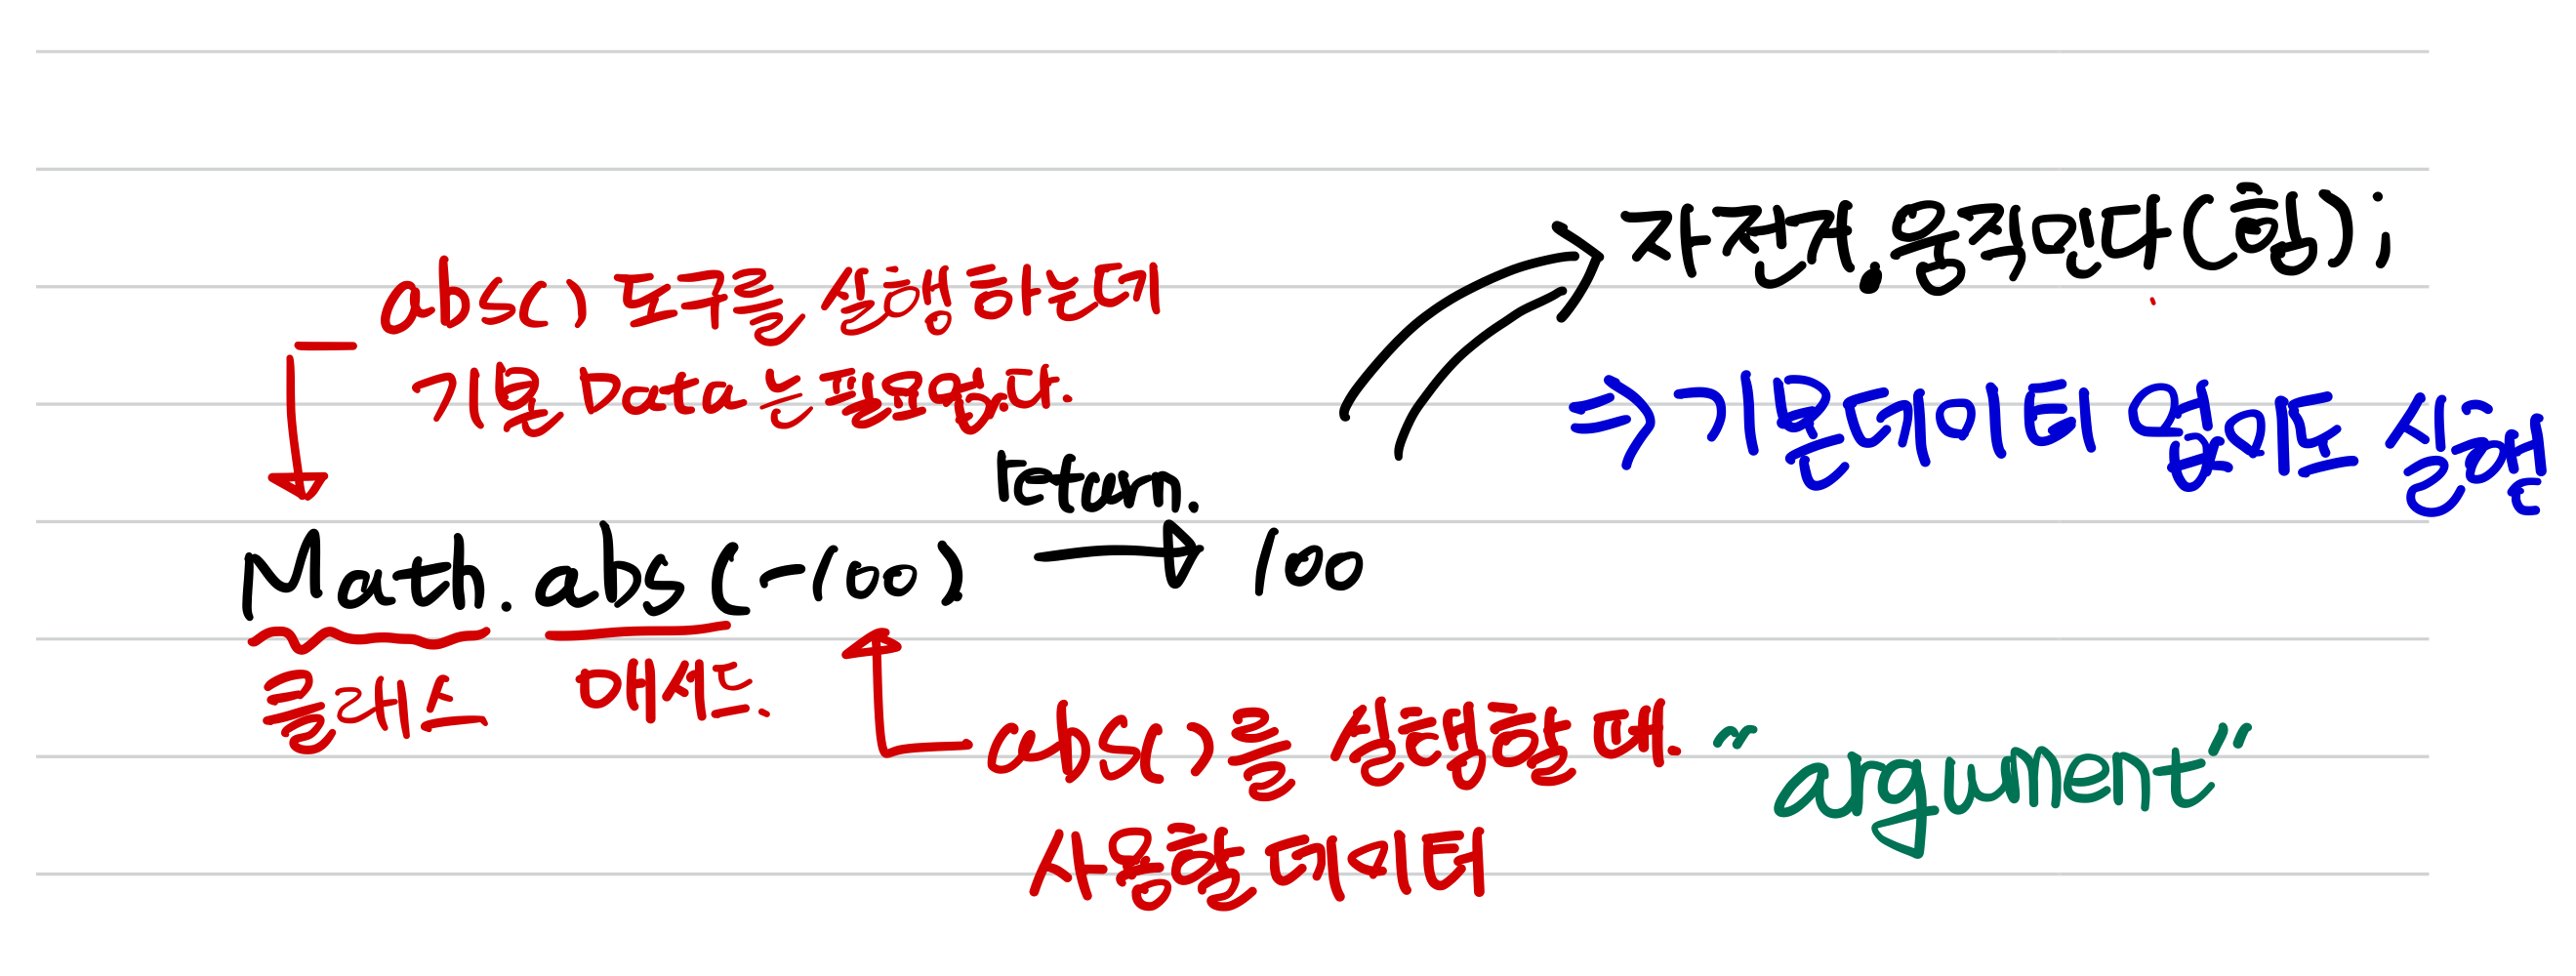 자전거.움직인다(힘);
abs() 도구를 실행하는데
기본 Data는 필요없다.
⇒ 기본데이터 없이도 실행
return.
Math. abs (-100) → 100
클래스 매서드.
abs()를 실행할 때. "argument"
사용할 데이터